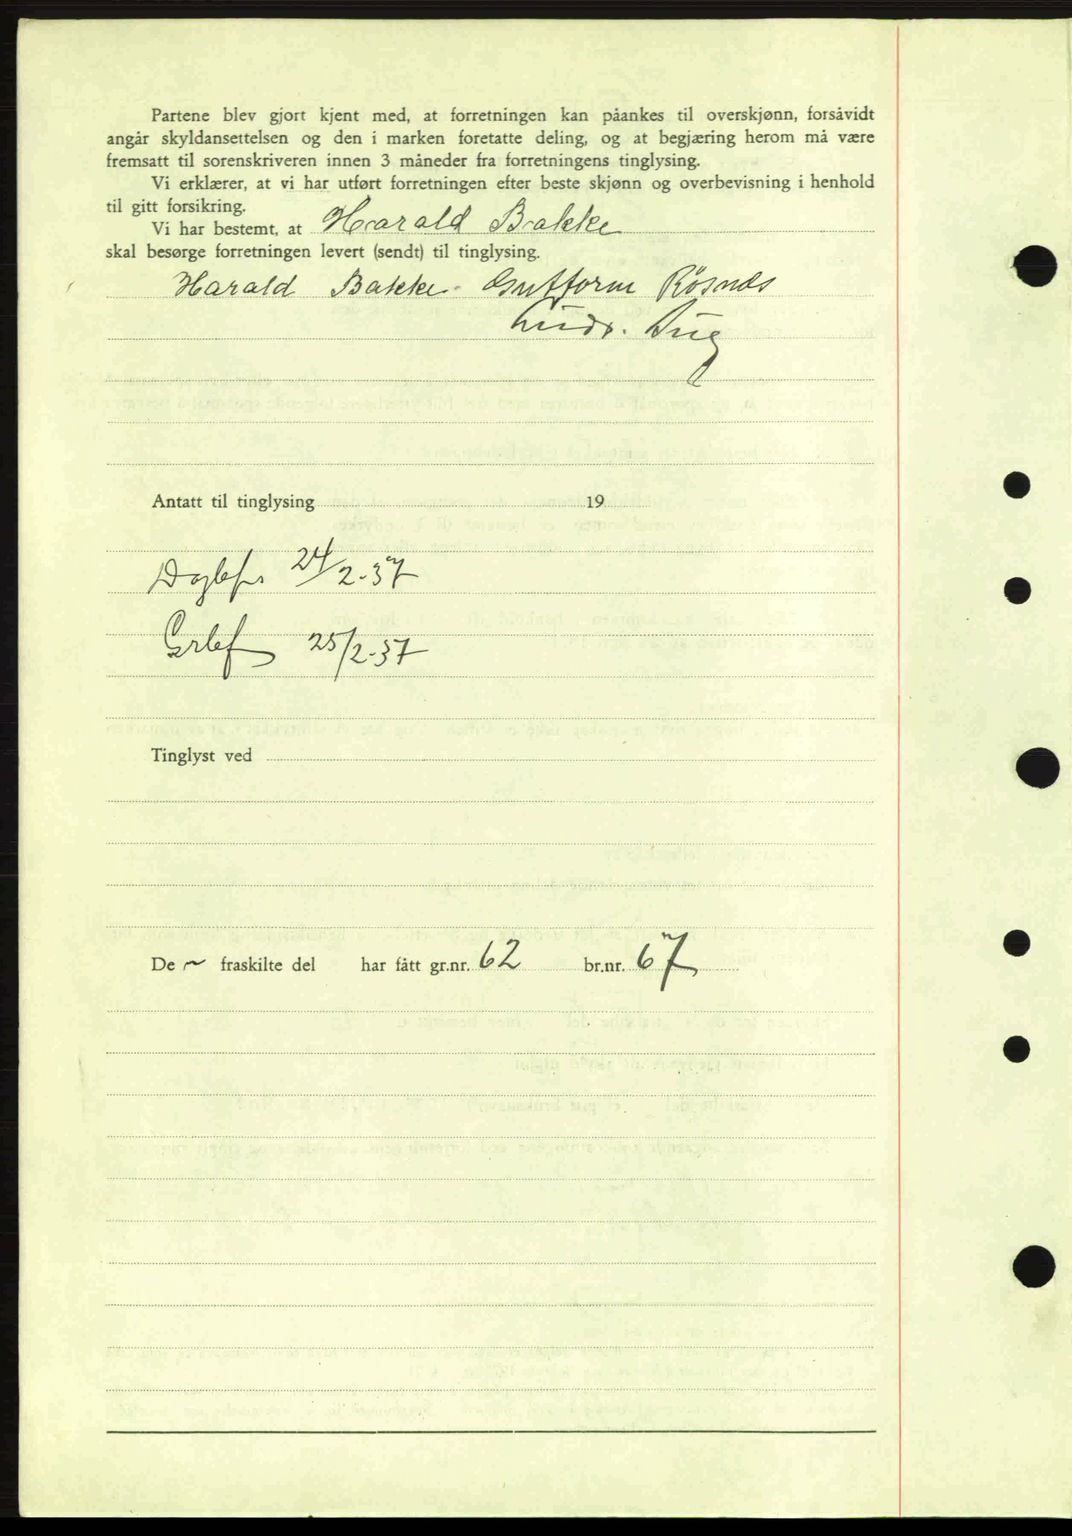 Partene blev gjort kjent med, at forretningen kan påankes til overskjønn, forsåvidt
angår skyldansettelsen og den i marken foretatte deling, og at begjæring herom må være
fremsatt til sorenskriveren innen 3 måneder fra forretningens tinglysing.
Vi erklærer, at vi har utført forretningen efter beste skjønn og overbevisning i henhold
til gitt forsikring.
Vi har bestemt, at Harald Bakke
skal besørge forretningen levert (sendt) til tinglysing.
Harald Bakke Guttorm Rösnes
Antatt til tinglysing 19
Dagbf. 24/2-37
Grbf 25/2-37
Tinglyst ved
De ~ fraskilte del har fått gr.nr. 62 br.nr. 67